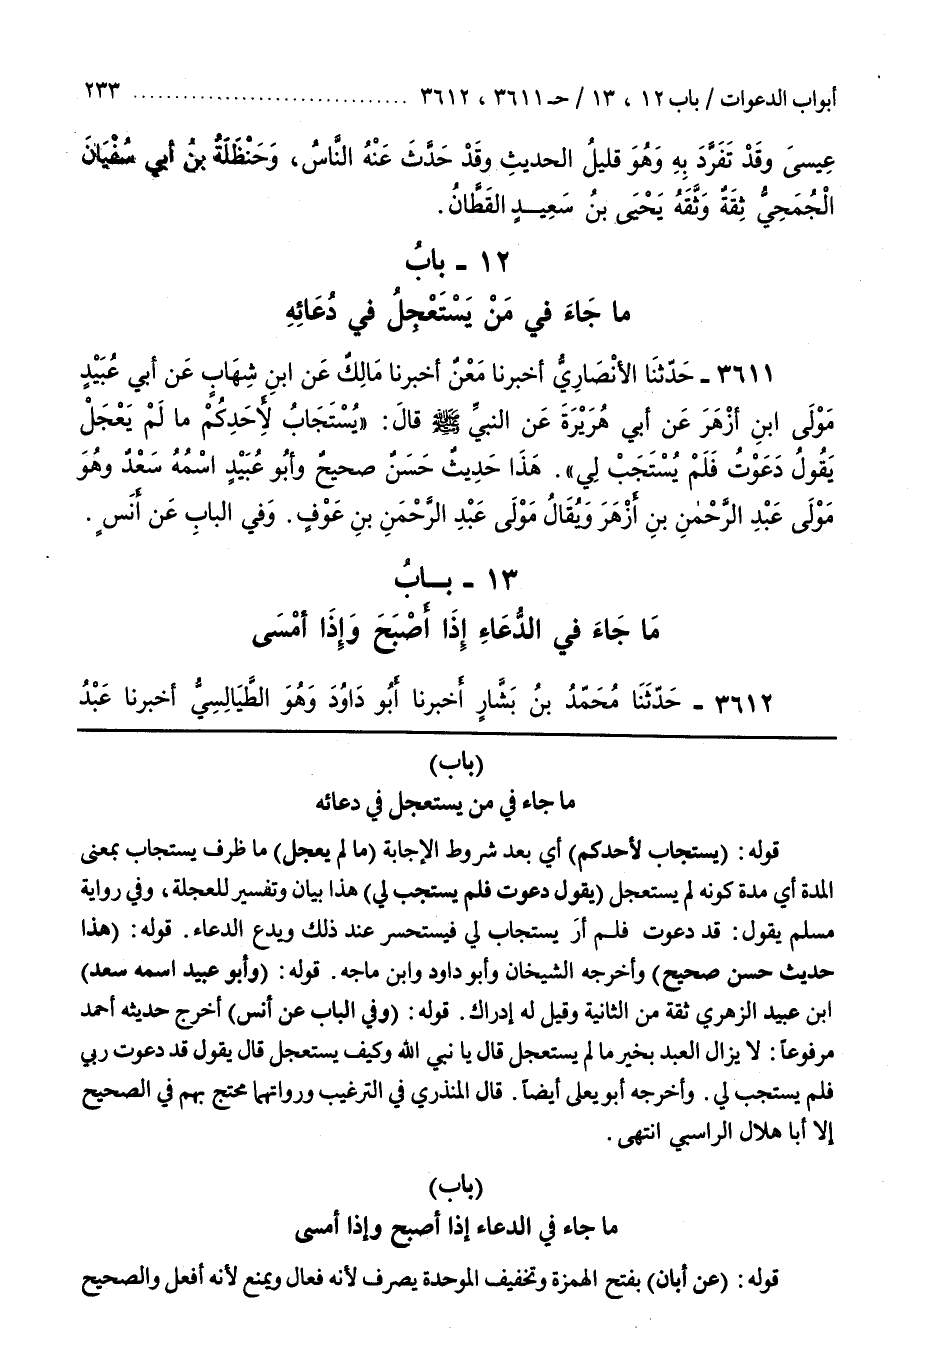 أبواب الدعوات / باب ١٢ ، ١٣ / حـ ٣٦١١ ، ٣٦١٢ ................................ ٢٣٣
عِيسىَ وقَدْ تَفَرَّدَ بِهِ وَهُوَ قليلُ الحديثِ وقَدْ حَدَّثَ عَنْهُ النَّاسُ، وَحَنْظَلَةُ بنُ أبي سُفْيَانَ
الْجُمَحِيُّ ثِقَةٌ وَثَّقَهُ يَحْيَى بنُ سَعِيـدٍ القَطَّانُ.
١٢ - بابُ
ما جَاءَ في مَنْ يَسْتَعْجِلُ في دُعَائِهِ
٣٦١١ - حَدّثنَا الأنْصَارِيُّ أخبرنا مَعْنٌ أخبرنا مَالِكٌ عَن ابنِ شِهَابٍ عَن أبي عُبَيْدٍ
مَوْلَى ابنِ أزْهَرَ عَن أبي هُرَيْرَةَ عَن النبيِّ ﷺ قالَ: «يُسْتَجَابُ لِأَحَدِكُمْ ما لَمْ يَعْجَلْ
يَقُولُ دَعَوْتُ فَلَمْ يُسْتَجَبْ لِي». هَذَا حَدِيثٌ حَسَنٌ صحيحٌ وأبُو عُبَيْدٍ اسْمُهُ سَعْدٌ وهُوَ
مَوْلَى عَبْدِ الرَّحْمٰنِ بنِ أَزْهَرَ وَيُقَالُ مَوْلَى عَبْدِ الرَّحْمَنِ بنِ عَوْفٍ. وَفي البابِ عَن أَنَسٍ.
١٣ - بـابُ
مَا جَاءَ في الدُّعَاءِ إِذَا أَصْبَحَ وَإِذَا أمْسَى
٣٦١٢ - حَدّثَنَا مُحَمّدُ بنُ بَشَّارٍ أَخبرنا أَبُو دَاوُدَ وَهُوَ الطَّيَالِسِيُّ أخبرنا عَبْدُ
(باب)
ما جاء في من يستعجل في دعائه
قوله: (يستجاب لأحدكم) أي بعد شروط الإجابة (ما لم يعجل) ما ظرف يستجاب بمعنى
المدة أي مدة كونه لم يستعجل (يقول دعوت فلم يستجب لي) هذا بيان وتفسير للعجلة، وفي رواية
مسلم يقول: قد دعوت فلـم أرَ يستجاب لي فيستحسر عند ذلك ويدع الدعاء. قوله: (هذا
حديث حسن صحيح) وأخرجه الشيخان وأبو داود وابن ماجه. قوله: (وأبو عبيد اسمه سعد)
ابن عبيد الزهري ثقة من الثانية وقيل له إدراك. قوله: (وفي الباب عن أنس) أخرج حديثه أحمد
مرفوعاً: لا يزال العبد بخير ما لم يستعجل قال يا نبي الله وكيف يستعجل قال يقول قد دعوت ربي
فلم يستجب لي. وأخرجه أبو يعلى أيضاً. قال المنذري في الترغيب ورواتهما محتج بهم في الصحيح
إلا أبا هلال الراسبي انتهى.
(باب)
ما جاء في الدعاء إذا أصبح وإذا أمسى
قوله: (عن أبان) بفتح الهمزة وتخفيف الموحدة يصرف لأنه فعال ويمنع لأنه أفعل والصحيح